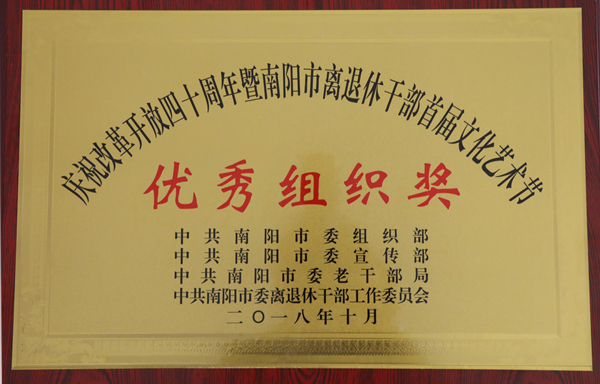 庆祝改革开放四十周年暨南阳市离退休干部首届文化艺术节
优秀组织奖
中共南阳市委组织部
中共南阳市委宣传部
中共南阳市委老干部局
中共南阳市委离退休干部工作委员会
二〇一八年十月